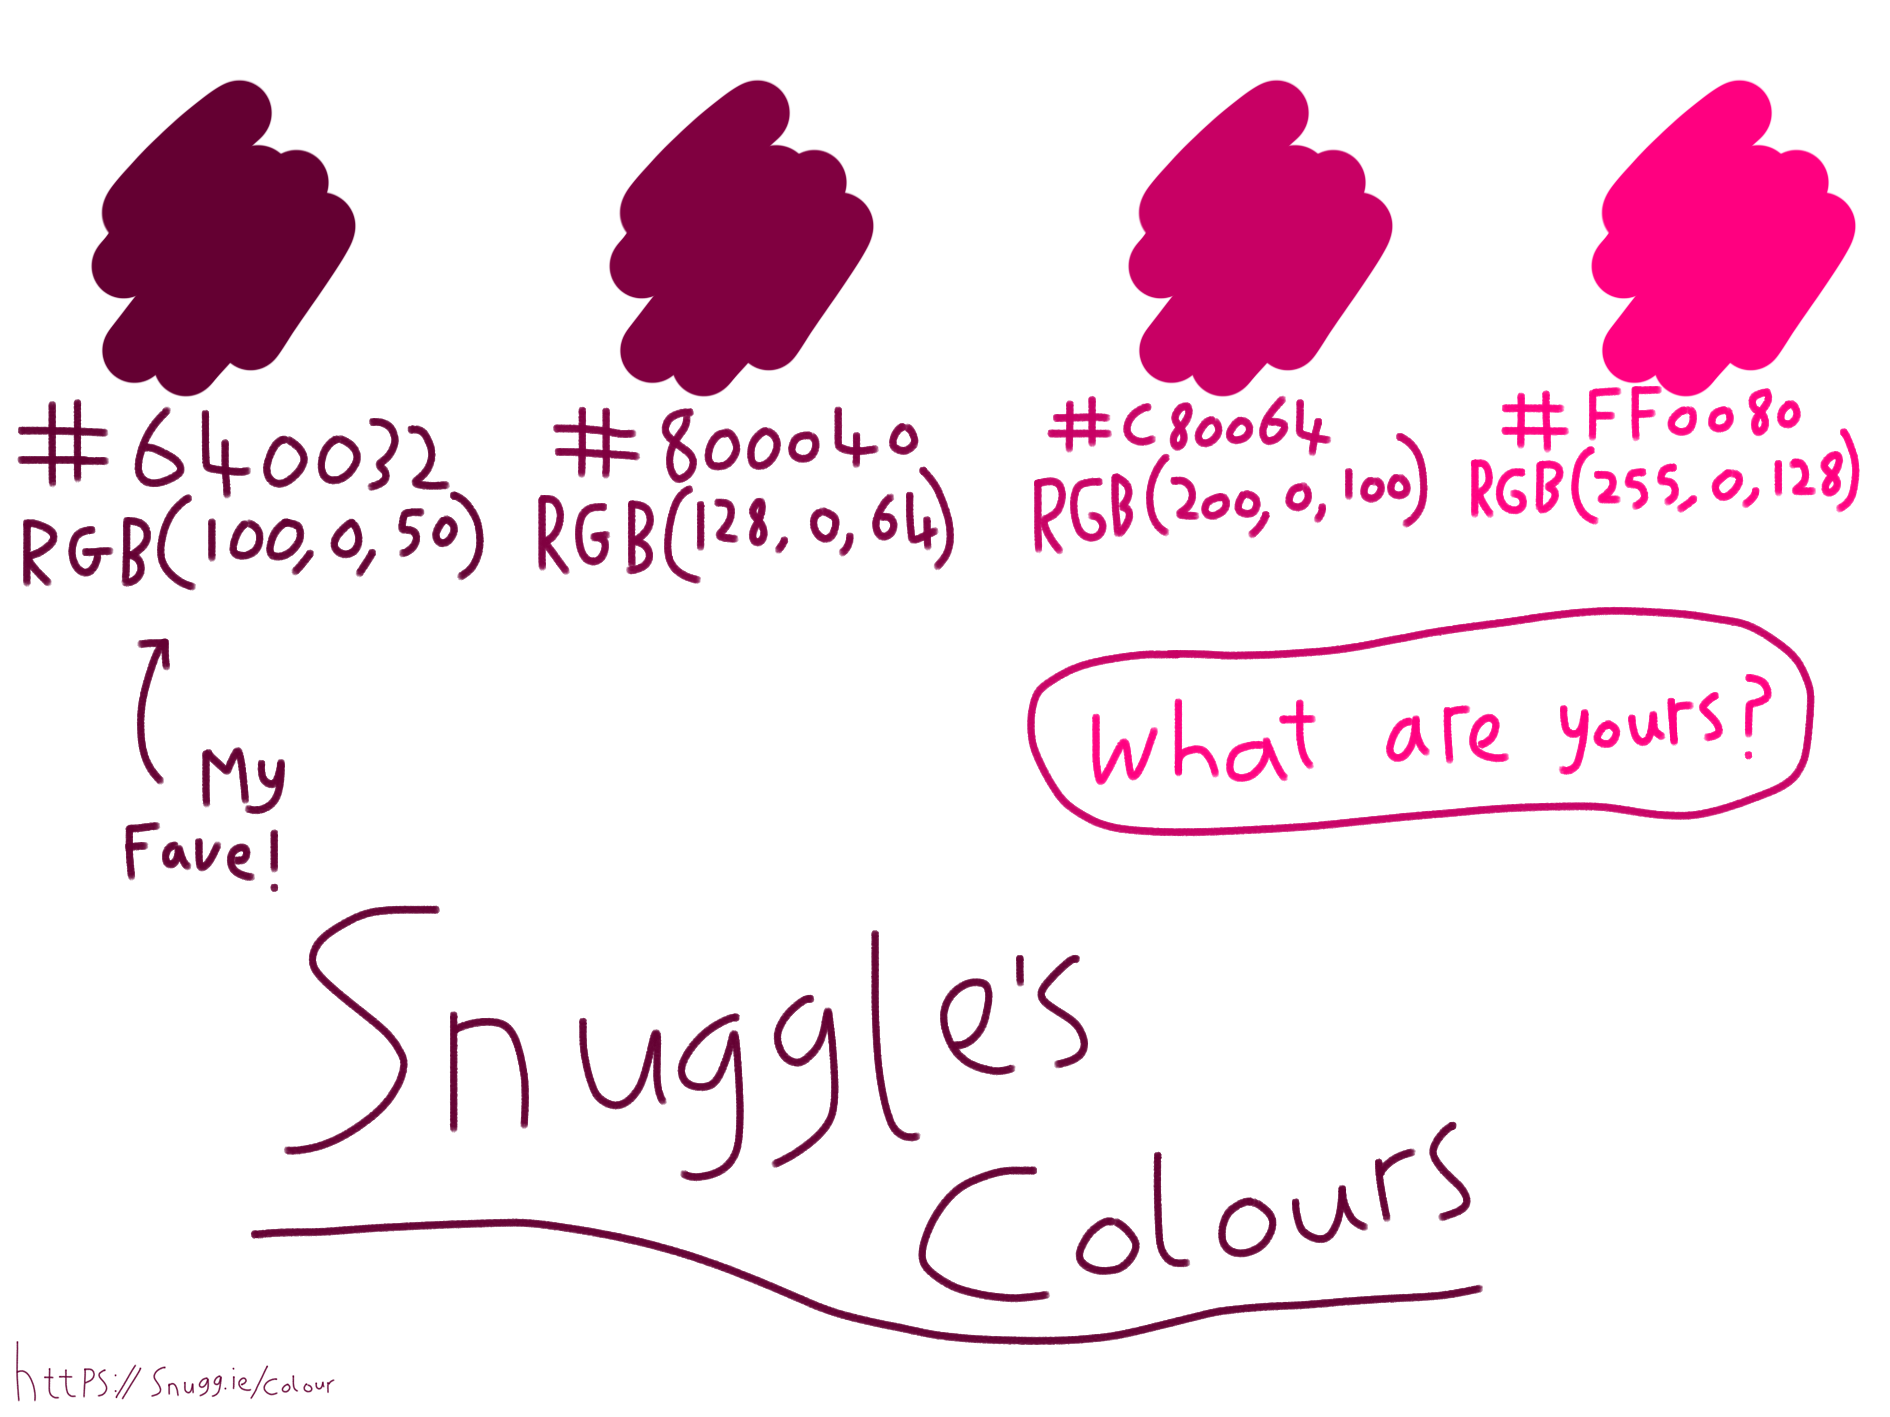 #640032
RGB(100,0,50)
#800040
RGB(128,0,64)
#C80064
RGB(200,0,100)
#FF0080
RGB(255,0,128)
My
Fave!
What are yours?
Snuggle's
Colours
https://snugg.ie/colour